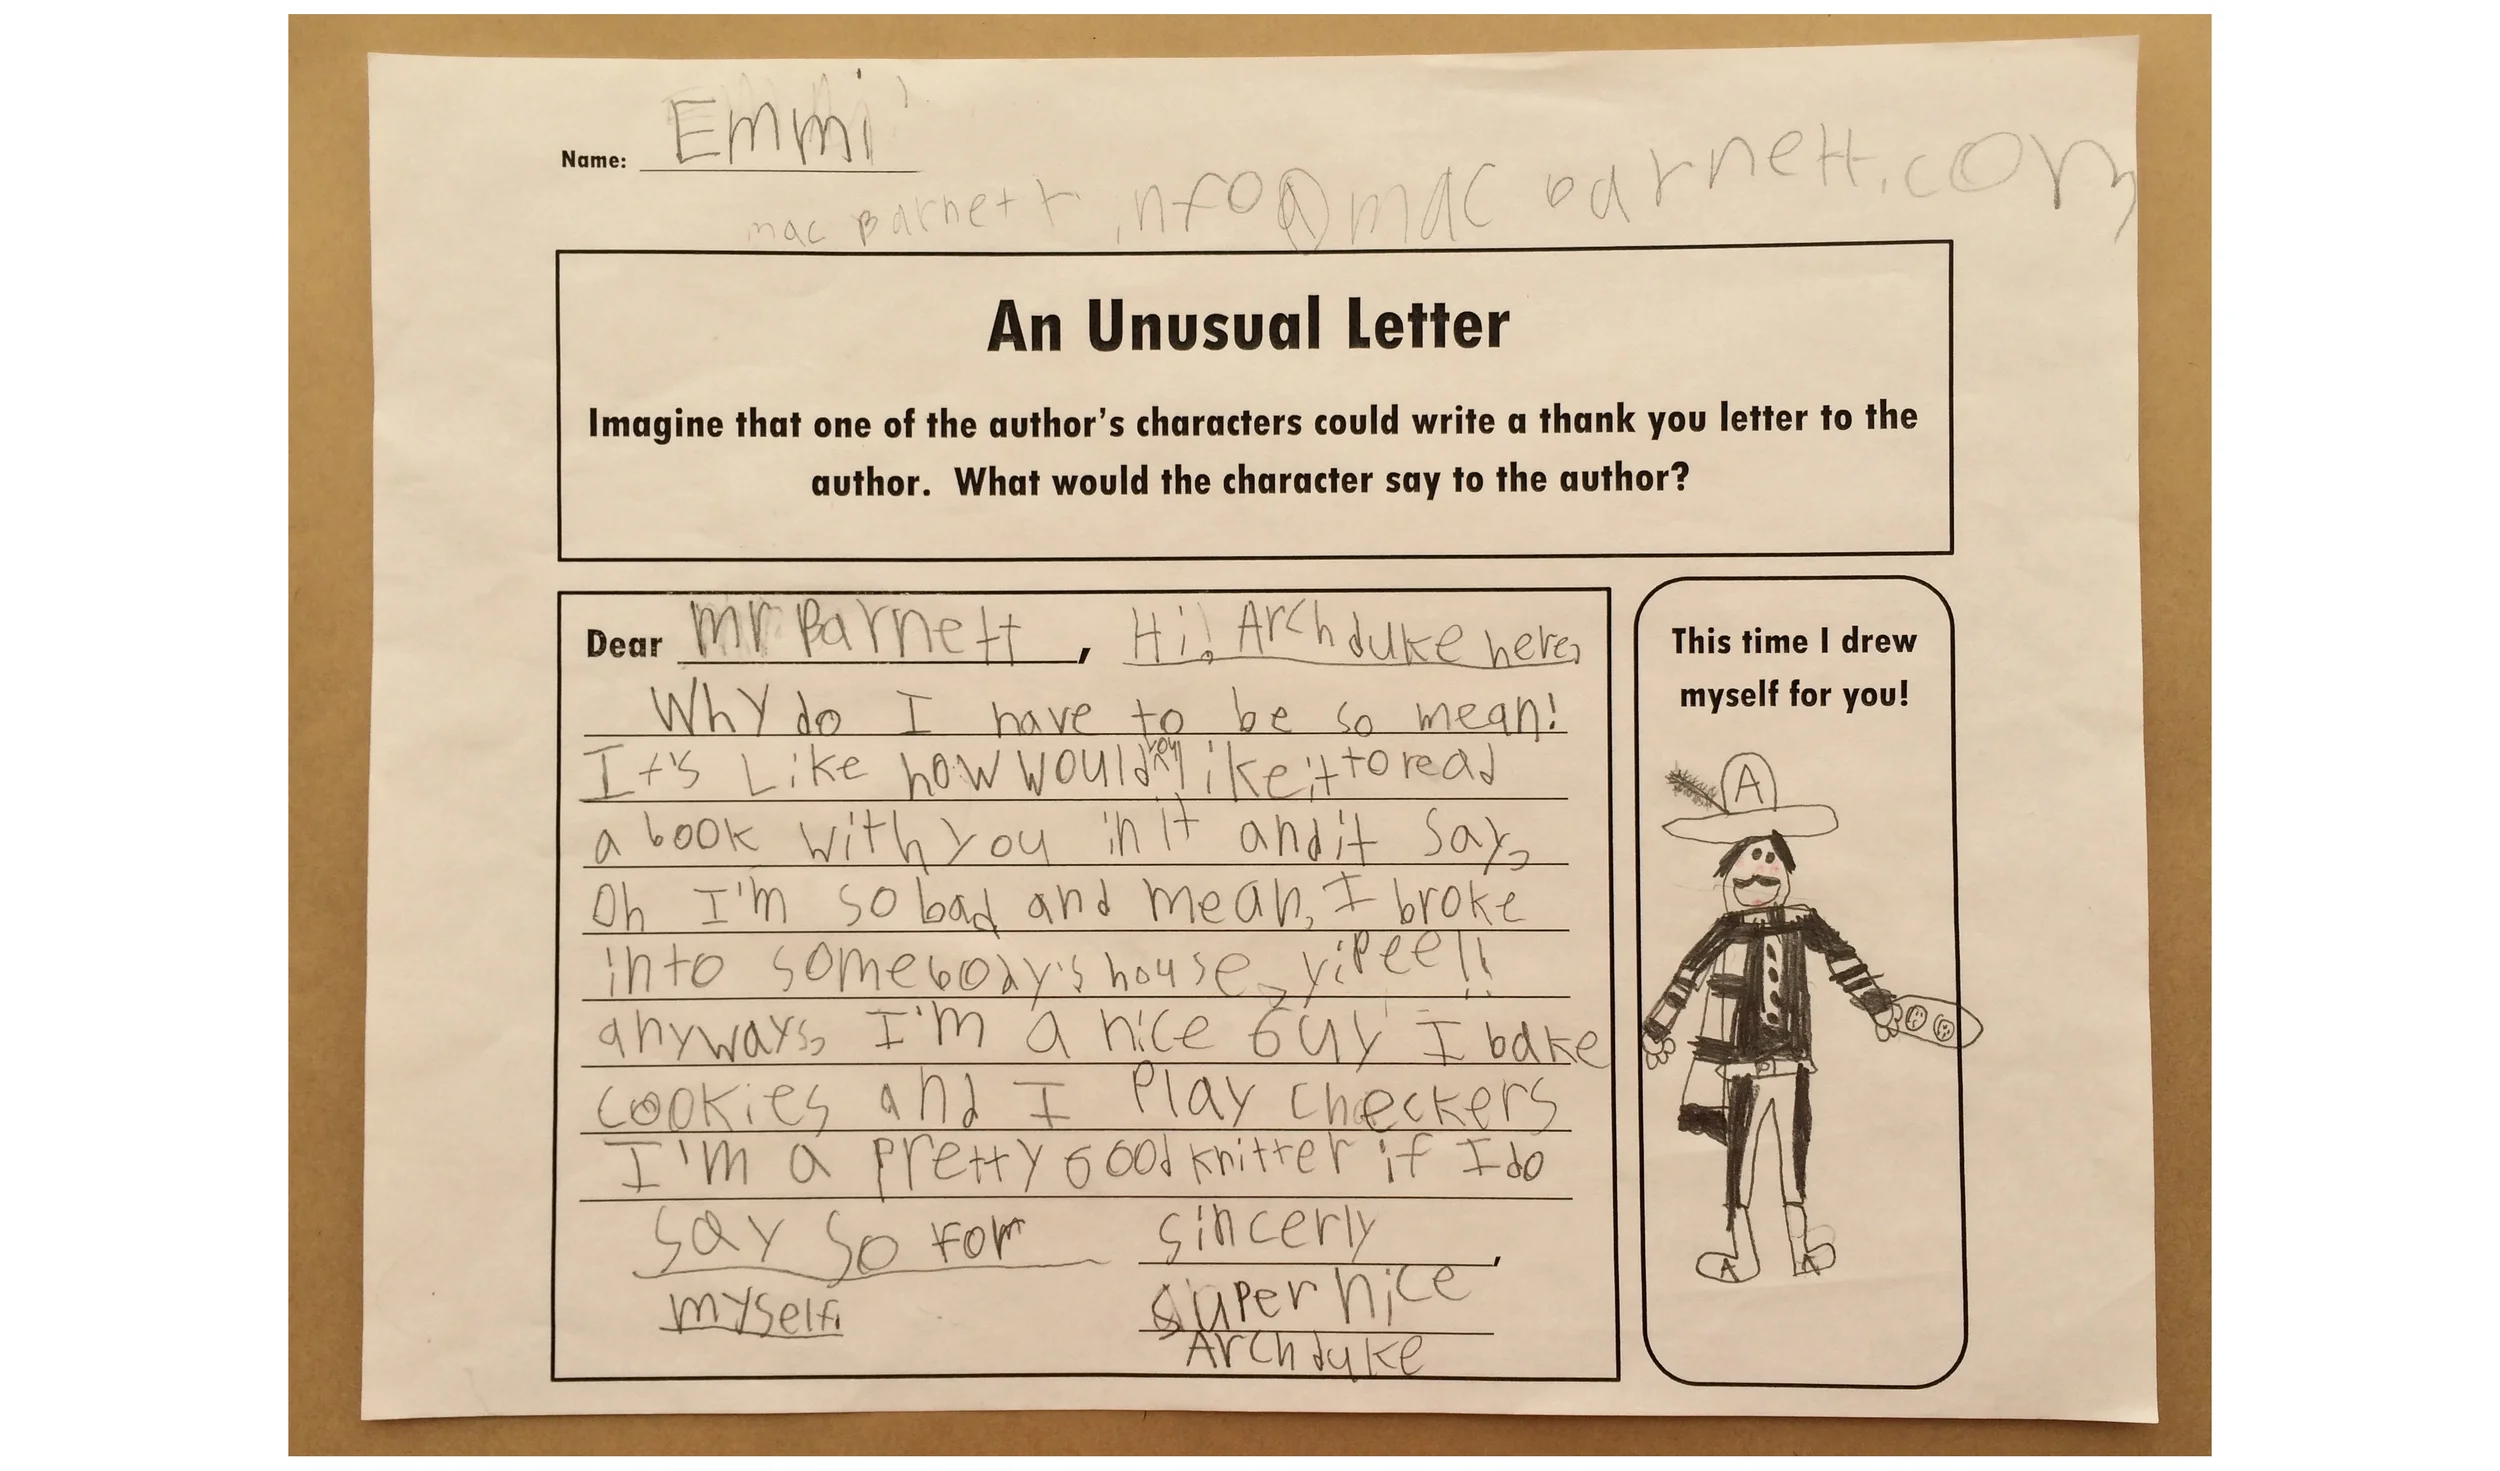 Name: Emmi
mac Barnett info@macbarnett.com
An Unusual Letter
Imagine that one of the author's characters could write a thank you letter to the
author. What would the character say to the author?
Dear mr Barnett, Hi! Archduke here,
Why do I have to be so mean!
It's Like how would you like it to read
a book with you in it and it say,
Oh I'm so bad and mean, I broke
into somebody's house, yipee!!
anyways, I'm a nice Guy I bake
cookies and I Play checkers
I'm a pretty Good knitter if I do
say so for
myself.
sincerly,
super nice
Archduke
This time I drew
myself for you!
A
P
A A